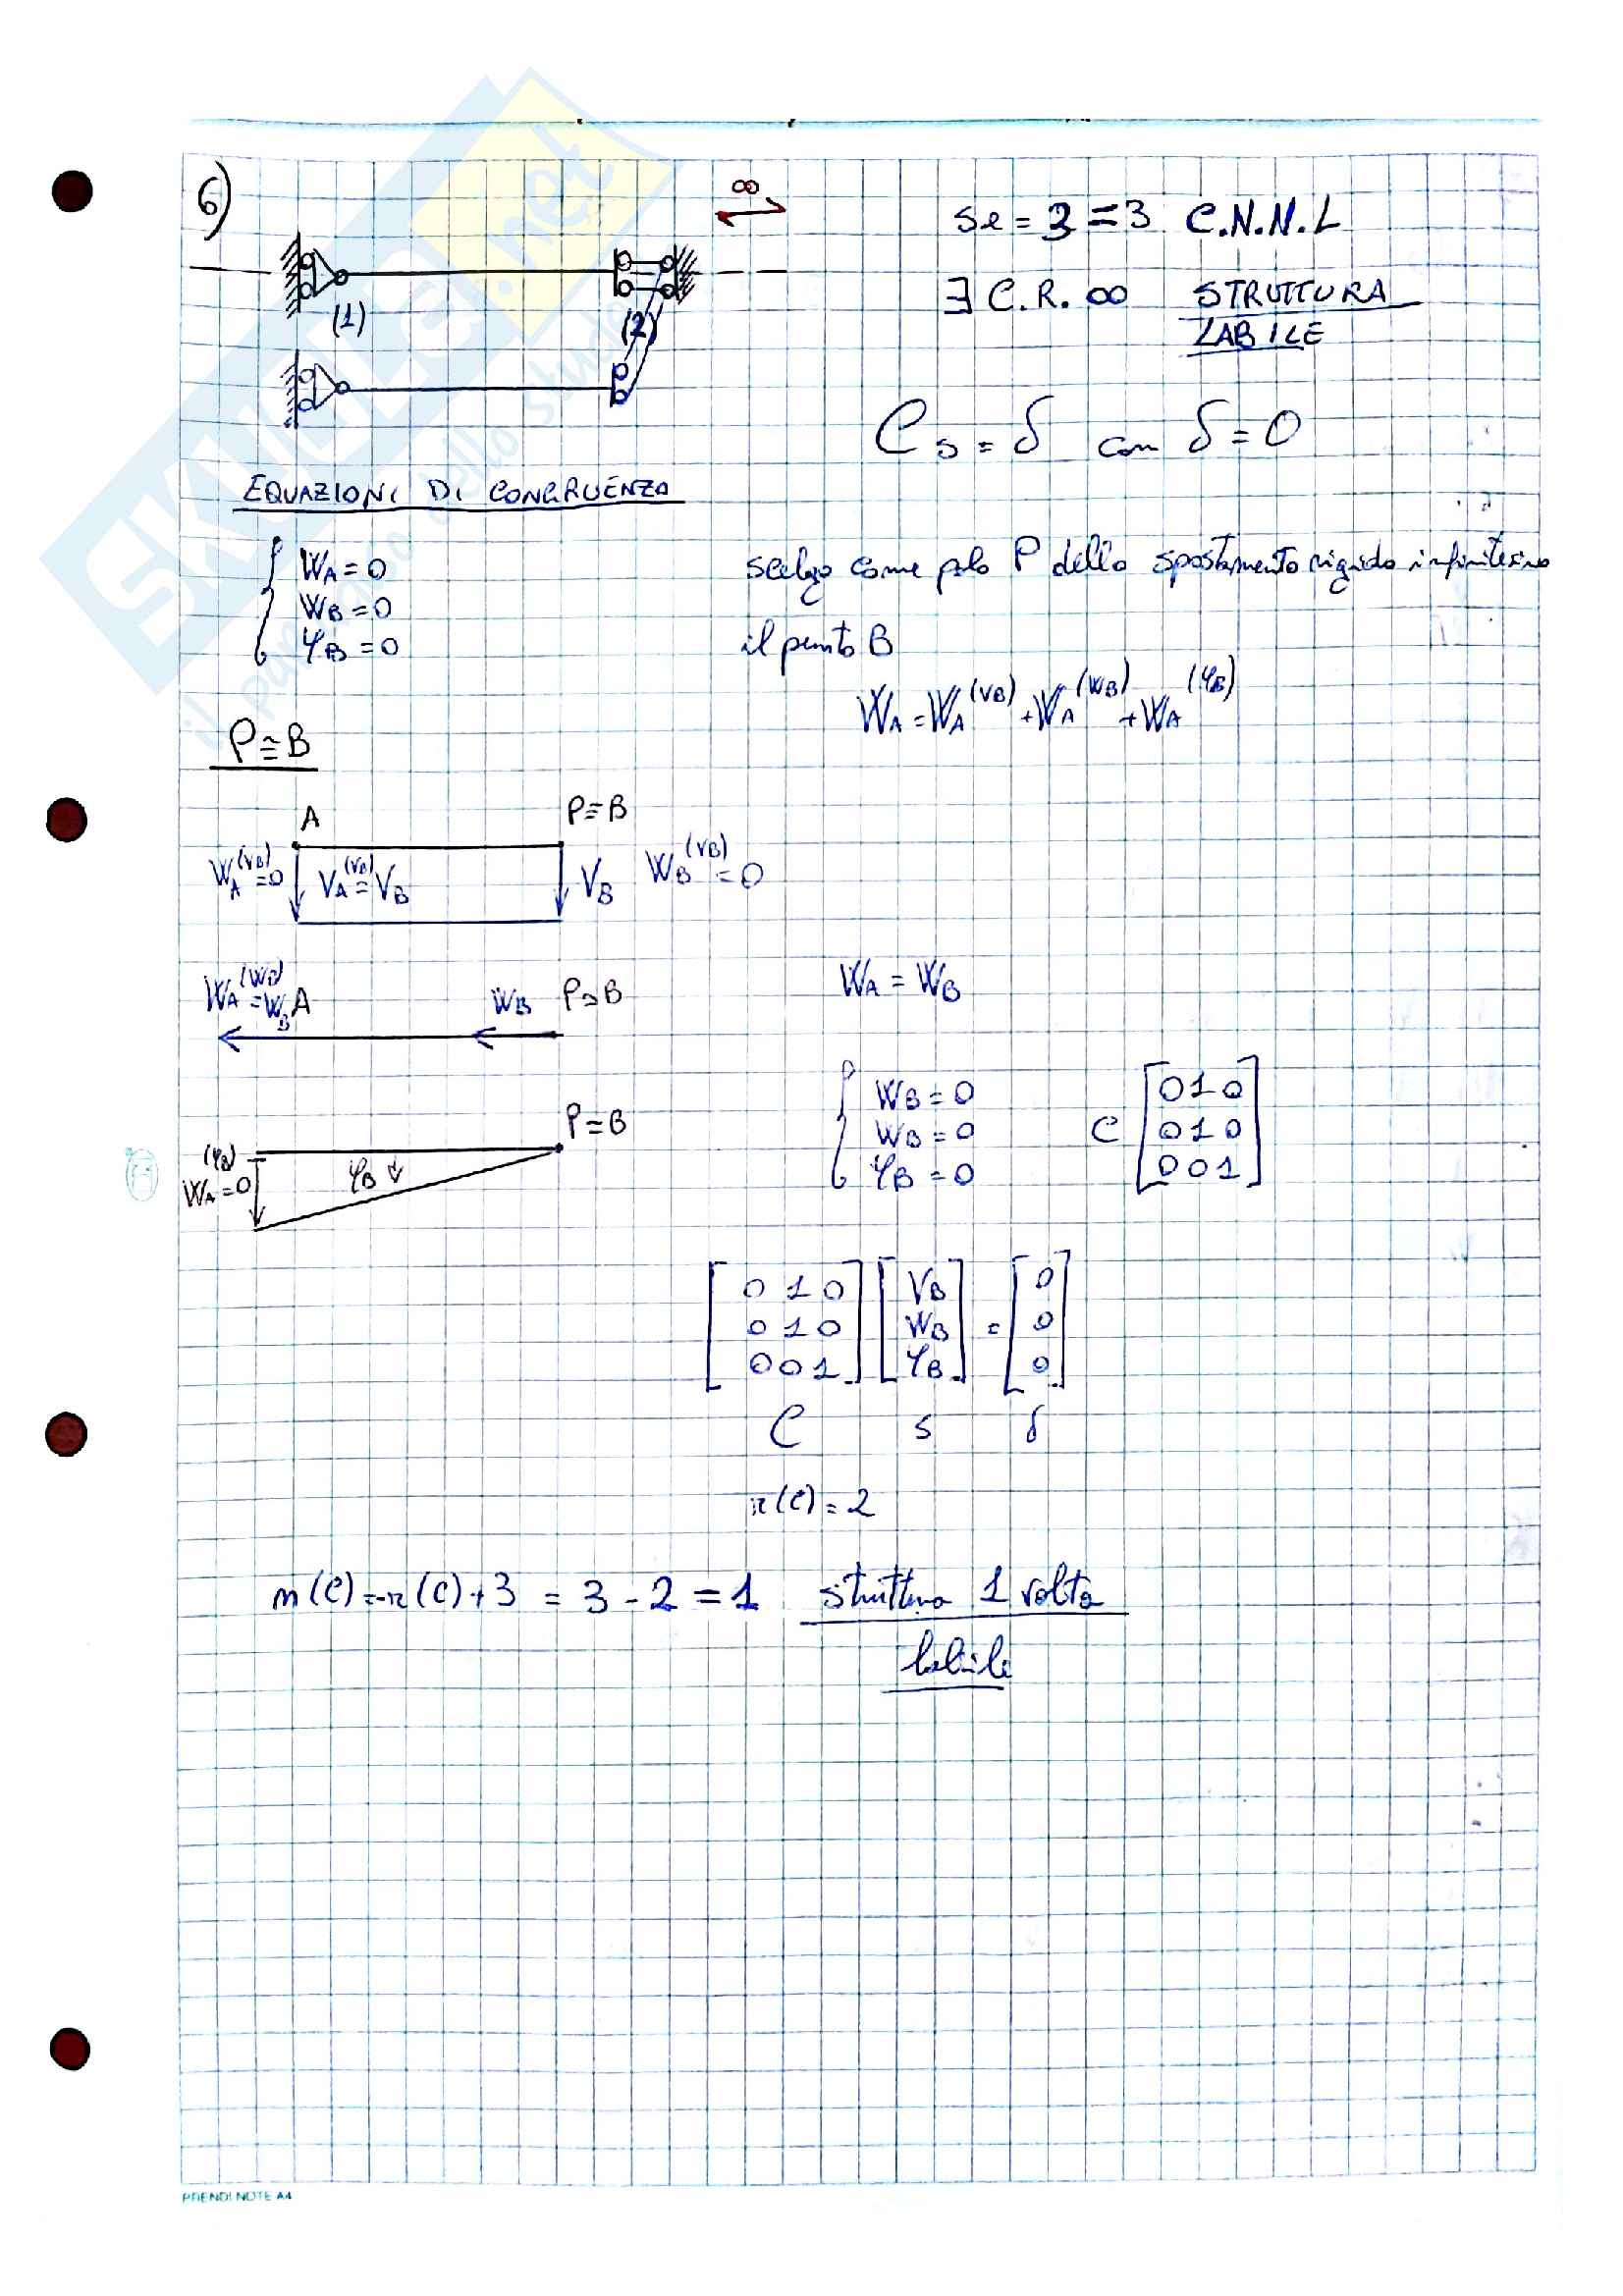 6)
∞
se = 3 = 3 C.N.N.L
∃ C.R. ∞ STRUTTURA
LABILE
(1)
(2)
C s = δ con δ = 0
EQUAZIONI DI CONGRUENZA
WA = 0
WB = 0
φB = 0
scelgo come polo P dello spostamento rigido infinitesimo
il punto B
WA = WA(VB) + WA(WB) + WA(φB)
P ≡ B
A P≡B
WA(VB) = 0 VA(VB) = VB VB WB(VB) = 0
WA(WB) = WB A WB P≡B WA = WB
P≡B
WA(φB) = 0 φB
WB = 0
WB = 0
φB = 0
C [0 1 0
0 1 0
0 0 1]
[0 1 0] [VB] [0]
[0 1 0] [WB] = [0]
[0 0 1] [φB] [0]
C s δ
r(C) = 2
n(C) = -r(C) + 3 = 3 - 2 = 1 struttura 1 volta
labile
PRENDI NOTE A4
SKUOLA.net